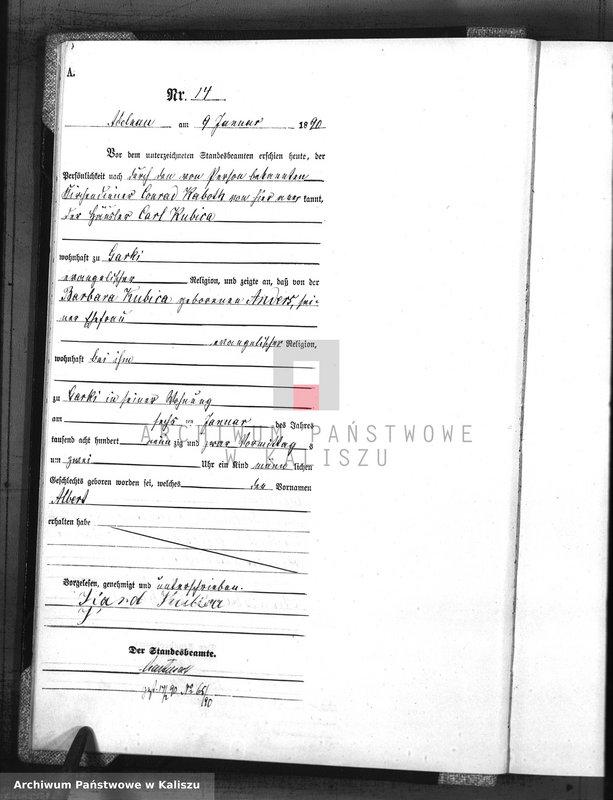 A.
Nr. 14
Adelnau am 9 Januar 1890
Vor dem unterzeichneten Standesbeamten erschien heute, der
Persönlichkeit nach durch den von Person bekannten
Kirchendiener Conrad Kaboth von hier aner kannt,
der Häusler Carl Kubica
wohnhaft zu Garki
evangelischer Religion, und zeigte an, daß von der
Barbara Kubica geborenen Anders, sei-
ner Ehefrau
evangelischer Religion,
wohnhaft bei ihm
zu Garki in seiner Wohnung
am sechs ten Januar des Jahres
tausend acht hundert neun zig und zwar Vormittag s
um zwei Uhr ein Kind männ lichen
Geschlechts geboren worden sei, welches den Vornamen
Albert
erhalten habe
Vorgelesen, genehmigt und unterschrieben.
Kubica
Der Standesbeamte.
ARCHIWUM PAŃSTWOWE
W KALISZU
Archiwum Państwowe w Kaliszu